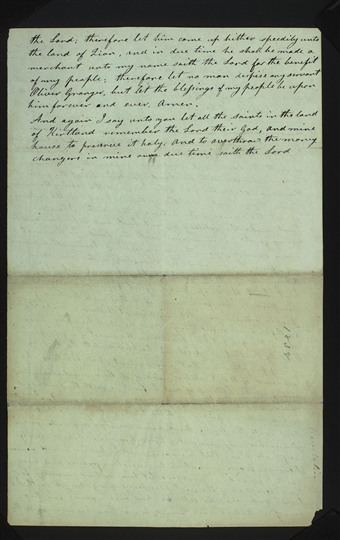 the Lord; therefore let him come up hither speedily unto
the land of Zion, and in due time he shall be made a
merchant unto my name saith the Lord for the benefit
of my people; therefore let no man despise my servant
Oliver Granger, but let the blessings of my people be upon
him forever and ever. Amen.
And again I say unto you let all the saints in the land
of Kirtland remember the Lord their God, and mine
house to preserve it holy. And to overthrow the money
changers in mine own due time saith the Lord